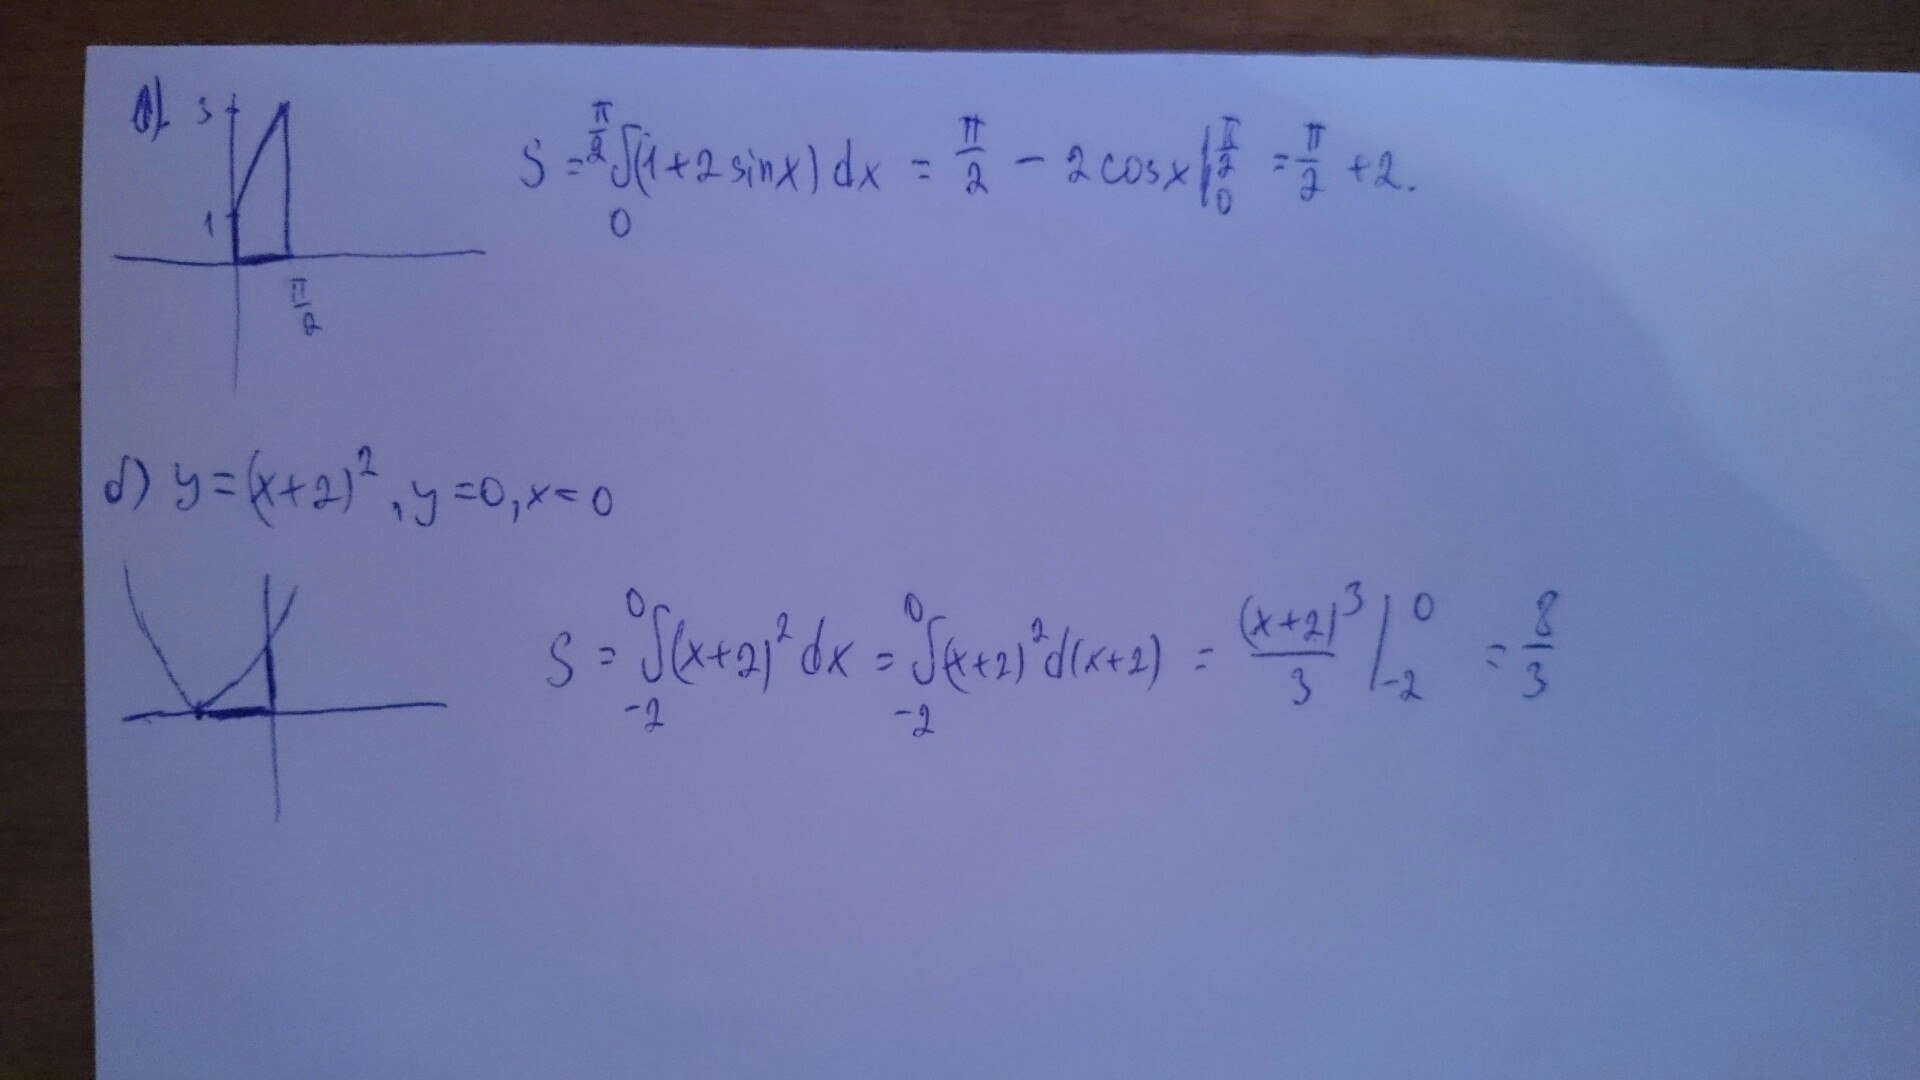 а). 3
1
π/2
S = ∫₀^(π/2) (1+2 sinx) dx = π/2 - 2 cosx |₀^(π/2) = π/2 + 2.
б) y=(x+2)², y=0, x=0
S = ∫₋₂⁰ (x+2)² dx = ∫₋₂⁰ (x+2)² d(x+2) = (x+2)³/3 |₋₂⁰ = 8/3